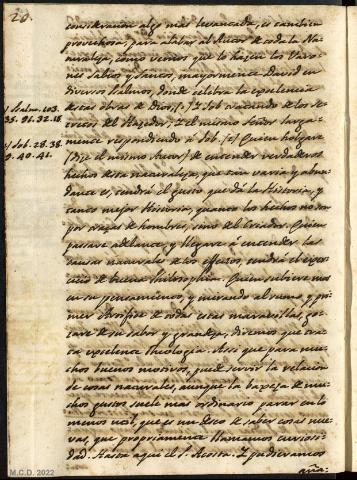 20.
consideracion algo mas levantada, es tambien
provechosa, para alabar al Autor de toda la Na-
turaleza, como vemos que lo hazen los Varo-
nes Sabios y Santos, mayormente David en
diversos Psalmos, donde celebra la excelencia
de estas obras de Dios. Y Job tratando de los se-
cretos del Hazedor; Y el mismo Señor larga-
mente respondiendo à Job. Quien holgare
(dize el mismo Autor) de entender verdaderos
hechos de esta naturaleza, que tan varia y abun-
dante es, tendrà el gusto que dà la Historia, y
tanto mejor Historia, quanto los hechos no son
por trazas de hombres, sino del Criador. Quien
passare adelante, y llegare à entender las
causas naturales de los efectos, tendrà el exer-
cicio de buena Philosophia. Quien subiere mas
en su pensamiento, y mirando al sumo, y pri-
mer Artifice de todas estas maravillas, go-
zare de su saber y grandeza, diremos que tra-
ta excelente Theologia. Assi que para mu-
chos buenos motivos, puede servir la relacion
de cosas naturales, aunque la baxeza de mu-
chos gustos suele mas ordinario parar en lo
menos util, que es un deseo de saber cosas nue-
vas, que propriamente llamamos curiosi-
dad. Hasta aqui el P. Acosta. Y pudieramos
aña-
Psalm. 103.
Job. 28. 38.
M.C.D. 2022